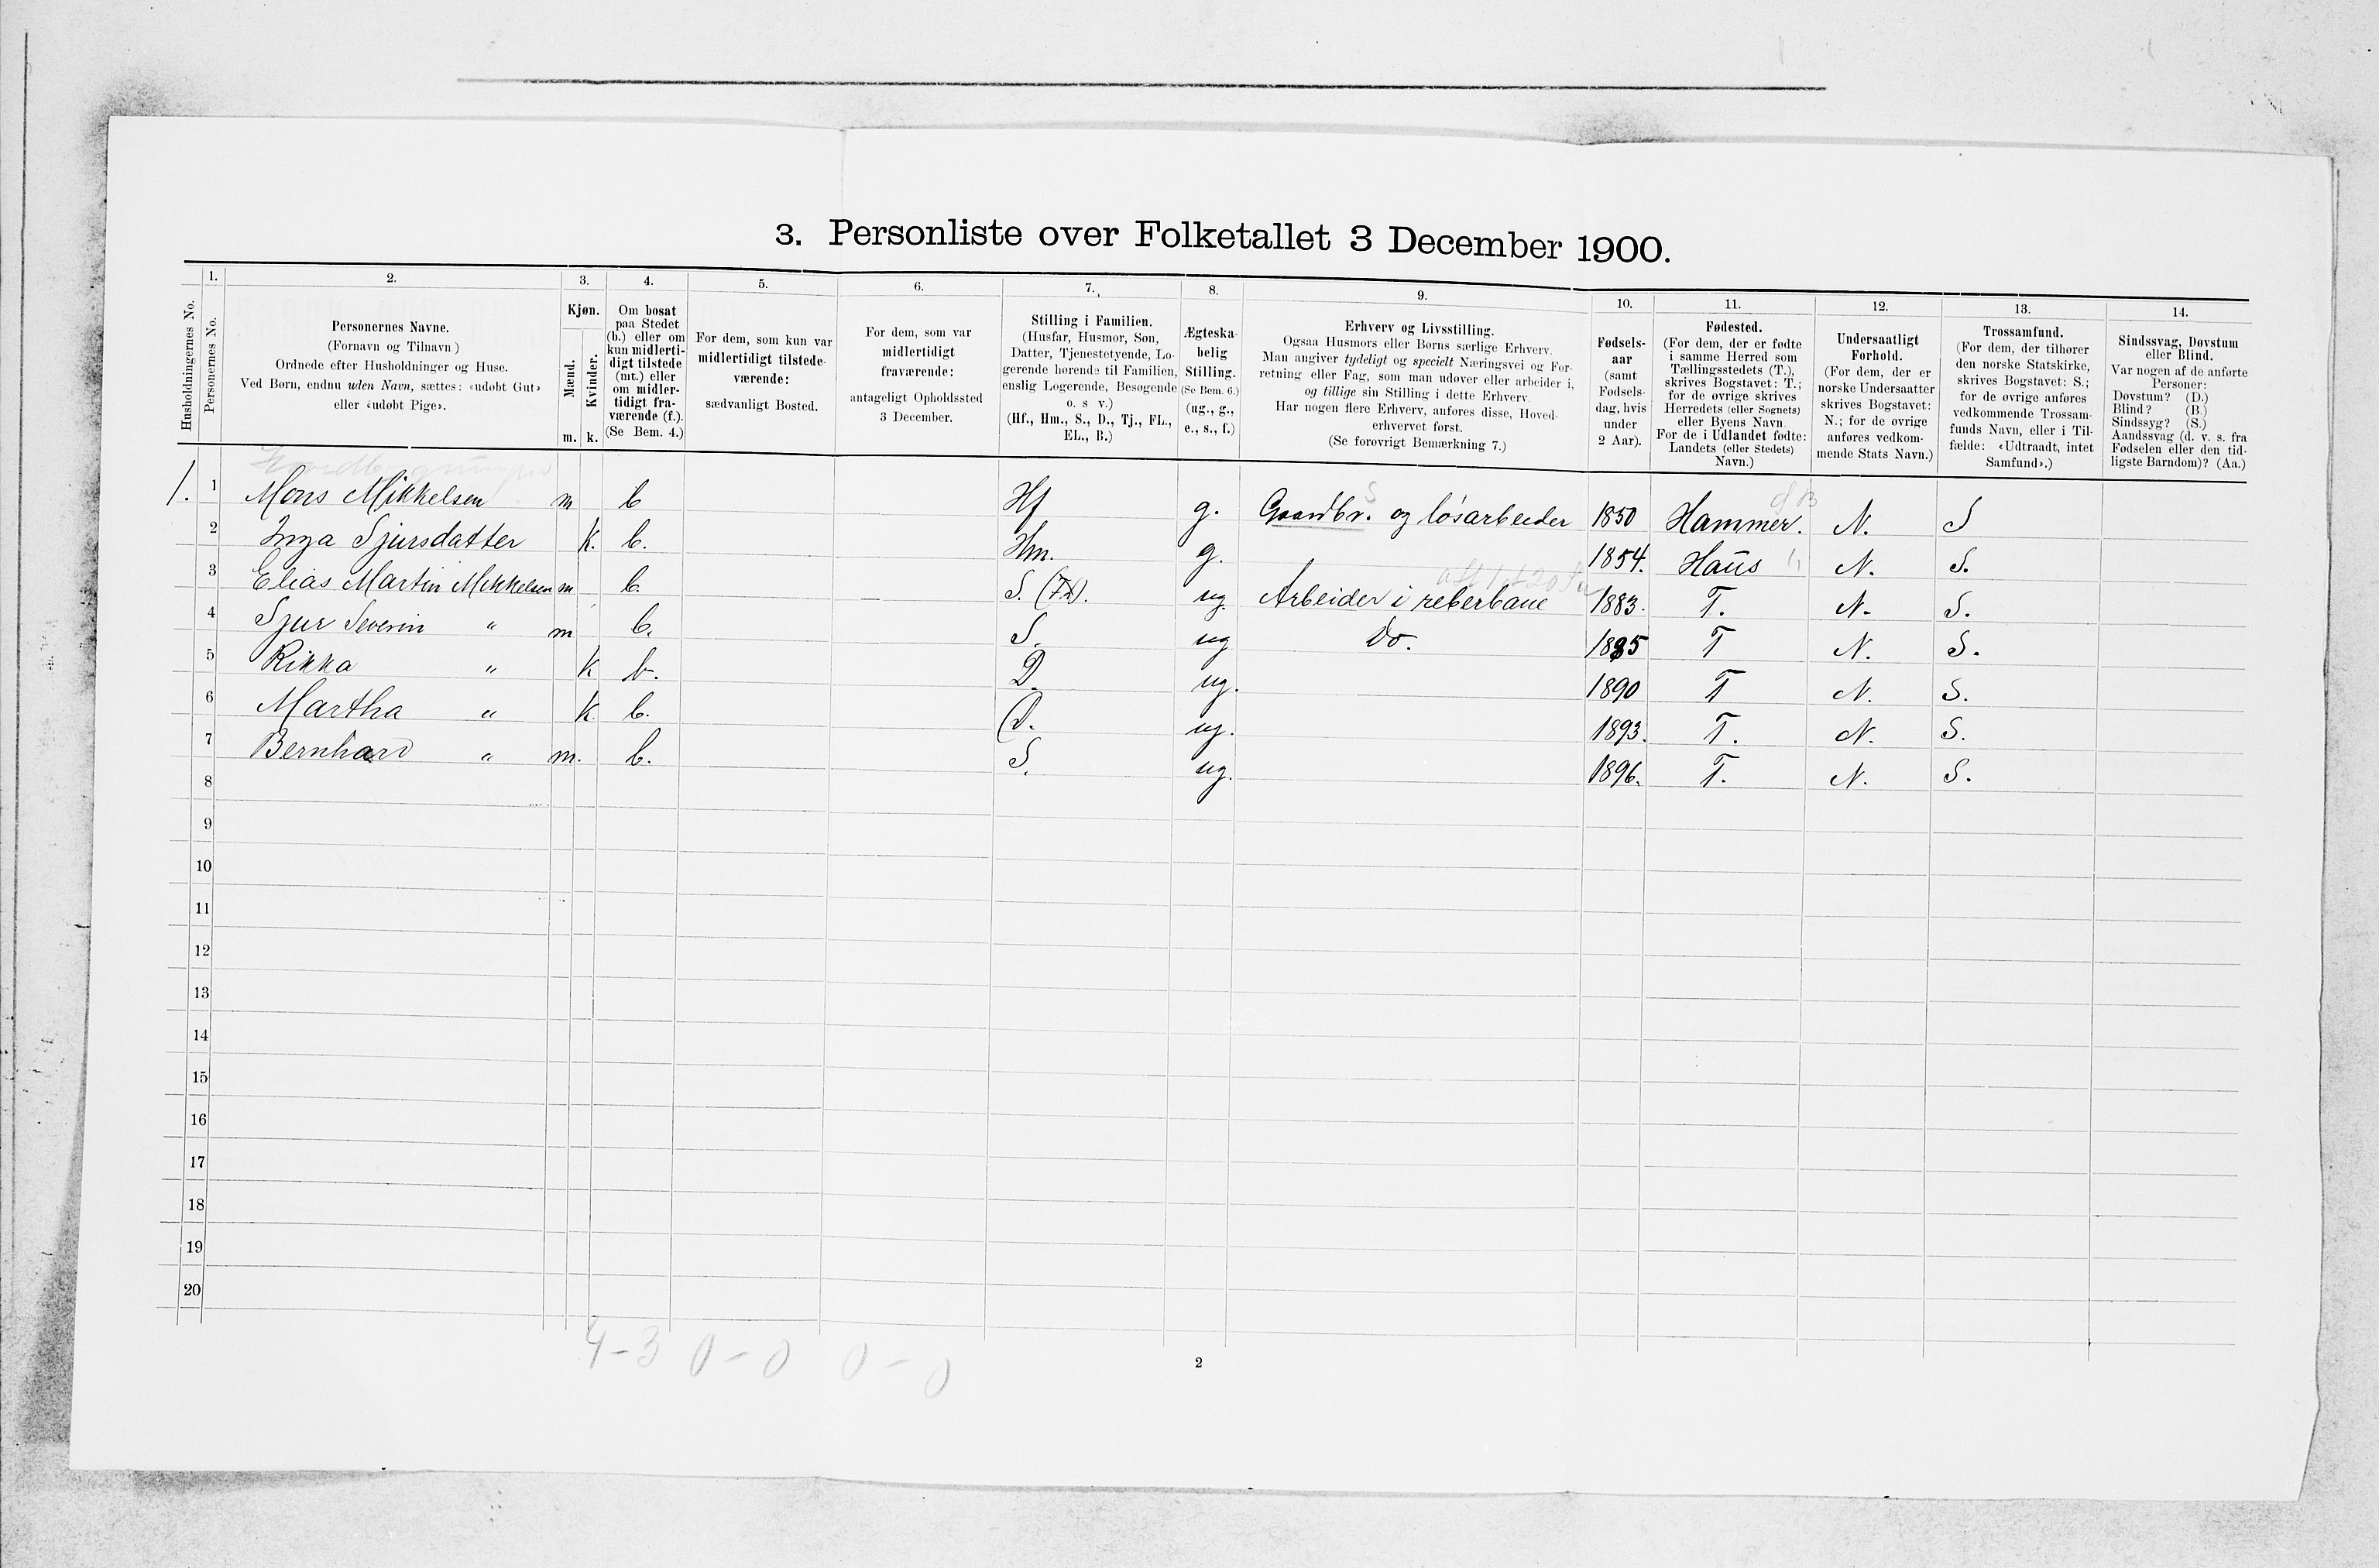 3. Personliste over Folketallet 3 December 1900.
Husholdningernes No.
1.
Personernes No.
2.
Personernes Navne.
(Fornavn og Tilnavn )
Ordnede efter Husholdninger og Huse.
Ved Børn, endnu uden Navn, sættes: «udøbt Gut»
eller «udøbt Pige».
3.
Kjøn.
Mænd.
Kvinder.
m. k.
4.
Om bosat
paa Stedet
(b.) eller om
kun midlerti-
digt tilstede
(mt.) eller
om midler-
tidigt fra-
værende (f.).
(Se Bem. 4.)
5.
For dem, som kun var
midlertidigt tilstede-
værende:
sædvanligt Bosted.
6.
For dem, som var
midlertidigt
fraværende:
antageligt Opholdssted
3 December.
7.
Stilling i Familien.
(Husfar, Husmor, Søn,
Datter, Tjenestetyende, Lo-
gerende hørende til Familien,
enslig Logerende, Besøgende
o. s v.)
(Hf., Hm., S., D., Tj., FL.,
EL., B.)
8.
Ægteska-
belig
Stilling.
(Se Bem. 6.)
(ug., g.,
e., s., f.)
9.
Erhverv og Livsstilling.
Ogsaa Husmors eller Børns særlige Erhverv.
Man angiver tydeligt og specielt Næringsvei og For-
retning eller Fag, som man udøver eller arbeider i,
og tillige sin Stilling i dette Erhverv.
Har nogen flere Erhverv, anføres disse, Hoved-
erhvervet først.
(Se forøvrigt Bemærkning 7.)
10.
Fødsels-
aar
(samt
Fødsels-
dag, hvis
under
2 Aar).
11.
Fødested.
(For dem, der er fødte
i samme Herred som
Tællingsstedets (T.),
skrives Bogstavet: T.;
for de øvrige skrives
Herredets (eller Sognets)
eller Byens Navn.
For de i Udlandet fødte:
Landets (eller Stedets)
Navn.)
12.
Undersaatligt
Forhold.
(For dem, der er
norske Undersaatter
skrives Bogstavet:
N.; for de øvrige
anføres vedkom-
mende Stats Navn.)
13.
Trossamfund.
(For dem, der tilhører
den norske Statskirke,
skrives Bogstavet: S.;
for de øvrige anføres
vedkommende Trossam-
funds Navn, eller i Til-
fælde: «Udtraadt, intet
Samfund».)
14.
Sindssvag, Døvstum
eller Blind.
Var nogen af de anførte
Personer:
Døvstum? (D.)
Blind? (B.)
Sindssyg? (S.)
Aandssvag (d. v. s. fra
Fødselen eller den tid-
ligste Barndom)? (Aa.)
1. 1 Mons Mikkelsen m b Hf g. Gaardbr. og løsarbeider 1850 Hammer. N. S
2 Inga Sjursdatter K. b. Hm. g. 1854. Haus N. S.
3 Elias Martin Mikkelsen m b. S. ug. Arbeider i reberbane 1883. T. N. S.
4 Sjur Severin " m b. S. ug Do. 1885 T N. S.
5 Rikka " K b. D. ug. 1890 T N. S.
6 Martha " K. b. D. ug. 1893. T. N. S.
7 Bernhard " m. b. S. ug. 1896. T. N. S.
8
9
10
11
12
13
14
15
16
17
18
19
20
4-3 0-0 0-0
2